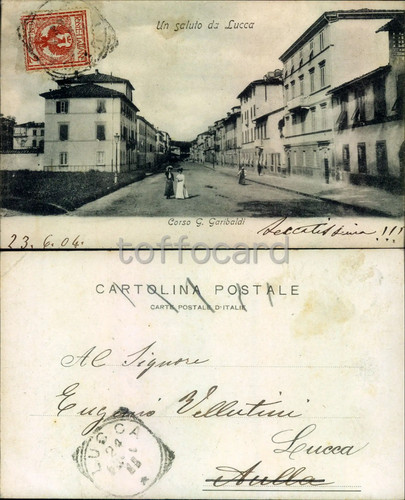 Un saluto da Lucca
Corso G. Garibaldi
23.6.04.
Seccatissima !!!
toffocard
CARTOLINA POSTALE
CARTE POSTALE D'ITALIE
Al Signore
Eugenio Vellutini
Lucca
Aulla
LUCCA
24